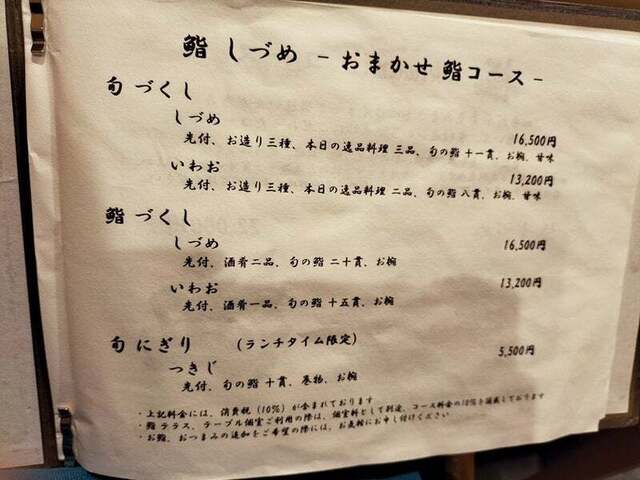 鮨 しづめ - おまかせ 鮨コース -
旬 づくし
しづめ 16,500円
先付、お造り三種、本日の逸品料理 三品、旬の鮨 十一貫、お椀、甘味
いわお 13,200円
先付、お造り三種、本日の逸品料理 二品、旬の鮨 八貫、お椀、甘味
鮨 づくし
しづめ 16,500円
先付、酒肴二品、旬の鮨 二十貫、お椀
いわお 13,200円
先付、酒肴一品、旬の鮨 十五貫、お椀
旬 にぎり (ランチタイム限定) 5,500円
つきじ
先付、旬の鮨 十貫、巻物、お椀
・上記料金には、消費税 (10%) が含まれております
・鮨 テラス、テーブル個室ご利用の際は、個室料として別途、コース料金の10%を頂戴しております
・お鮨、おつまみの追加をご希望の際には、お気軽にお申し付けください